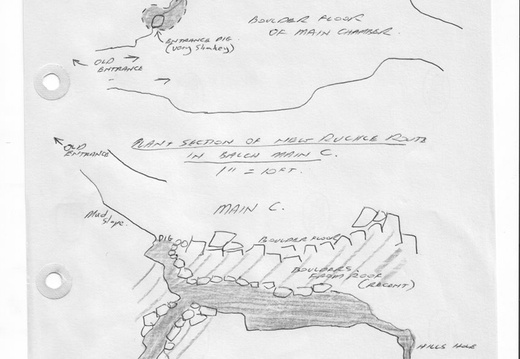 BOULDER FLOOR
OF MAIN CHAMBER.
ENTRANCE DIG
(very shakey)
OLD
ENTRANCE
PLAN + SECTION OF NEW RUCKLE ROUTE
IN BALCH MAIN C.
1" = 10FT.
OLD
ENTRANCE
Mud
slope.
MAIN C.
DIG
BOULDER FLOOR
BOULDERS
FROM ROOF
(RECENT)
HILLS HOLE